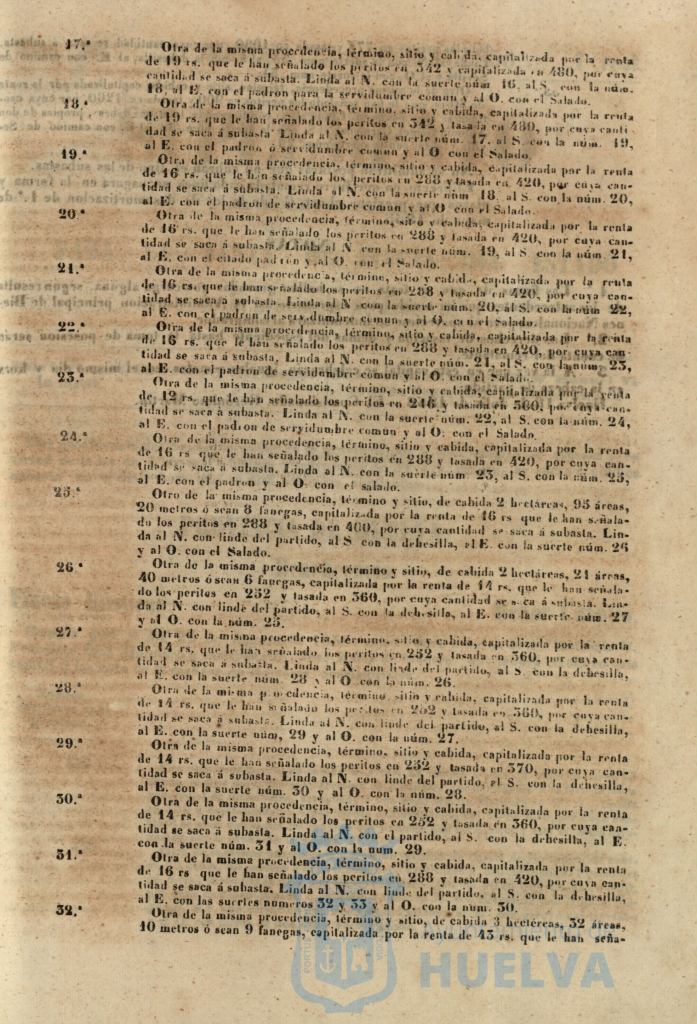 17.ª Otra de la misma procedencia, término, sitio y cabida, capitalizada por la renta
de 19 rs. que le han señalado los peritos en 342 y capitalizada en 480, por cuya
cantidad se saca á subasta. Linda al N. con la suerte núm 16, al S. con la núm.
18, al E. con el padron para la servidumbre comun y al O. con el Salado.
18.ª Otra de la misma procedencia, término, sitio y cabida, capitalizada por la renta
de 19 rs. que le han señalado los peritos en 342 y tasada en 480, por cuya canti-
dad se saca á subasta Linda al N. con la suerte núm. 17, al S. con la núm. 19,
al E. con el padron ó servidumbre comun y al O. con el Salado.
19.ª Otra de la misma procedencia, término, sitio y cabida, capitalizada por la renta
de 16 rs. que le han señalado los peritos en 288 y tasada en 420, por cuya can-
tidad se saca á subasta. Linda al N. con la suerte núm 18, al S. con la núm. 20,
al E. con el padron de servidumbre comun y al O con el Salado.
20.ª Otra de la misma procedencia, término, sitio y cabida, capitalizada por la renta
de 16 rs. que le han señalado los peritos en 288 y tasada en 420, por cuya can-
tidad se saca á subasta. Linda al N. con la suerte núm. 19, al S. con la núm. 21,
al E. con el citado padron y al O. con el Salado.
21.ª Otra de la misma procedencia, término, sitio y cabida, capitalizada por la renta
de 16 rs. que le han señalado los peritos en 288 y tasada en 420, por cuya can-
tidad se saca á subasta. Linda al N con la suerte núm. 20, al S. con la núm 22,
al E. con el padron de servidumbre comun y al O. con el Salado.
22.ª Otra de la misma procedencia, término, sitio y cabida, capitalizada por la renta
de 16 rs. que le han señalado los peritos en 288 y tasada en 420, por cuya can-
tidad se saca á subasta. Linda al N. con la suerte núm. 21, al S. con la núm. 23,
al E. con el padron de servidumbre comun y al O. con el Salado.
23.ª Otra de la misma procedencia, término, sitio y cabida, capitalizada por la renta
de 12 rs. que le han señalado los peritos en 216 y tasada en 360, por cuya can-
tidad se saca á subasta. Linda al N. con la suerte núm. 22, al S. con la núm. 24,
al E. con el padron de servidumbre comun y al O. con el Salado.
24.ª Otra de la misma procedencia, término, sitio y cabida, capitalizada por la renta
de 16 rs que le han señalado los peritos en 288 y tasada en 420, por cuya can-
tidad se saca á subasta. Linda al N. con la suerte núm 23, al S. con la núm. 25,
al E. con el padron y al O. con el salado.
25.ª Otro de la misma procedencia, término y sitio, de cabida 2 hectáreas, 95 áreas,
20 metros ó sean 8 fanegas, capitalizada por la renta de 16 rs que le han señala-
do los peritos en 288 y tasada en 400, por cuya cantidad se saca á subasta. Lin-
da al N. con linde del partido, al S con la dehesilla, al E. con la suerte núm. 26
y al O. con el Salado.
26.ª Otra de la misma procedencia, término y sitio, de cabida 2 hectáreas, 21 áreas,
40 metros ó sean 6 fanegas, capitalizada por la renta de 14 rs. que le han señala-
do los peritos en 252 y tasada en 360, por cuya cantidad se saca á subasta. Lin-
da al N. con linde del partido, al S. con la dehesilla, al E. con la suerte núm. 27
y al O. con la núm. 25.
27.ª Otra de la misma procedencia, término, sitio y cabida, capitalizada por la renta
de 14 rs. que le han señalado los peritos en 252 y tasada en 360, por cuya can-
tidad se saca á subasta. Linda al N. con linde del partido, al S. con la dehesilla,
al E. con la suerte núm. 28 y al O con la núm. 26.
28.ª Otra de la misma procedencia, término, sitio y cabida, capitalizada por la renta
de 14 rs. que le han señalado los peritos en 252 y tasada en 360, por cuya can-
tidad se saca á subasta. Linda al N. con linde del partido, al S. con la dehesilla,
al E. con la suerte núm, 29 y al O. con la núm. 27.
29.ª Otra de la misma procedencia, término, sitio y cabida, capitalizada por la renta
de 14 rs. que le han señalado los peritos en 252 y tasada en 370, por cuya can-
tidad se saca á subasta. Linda al N. con linde del partido, al S. con la dehesilla,
al E. con la suerte núm. 30 y al O. con la núm. 28.
30.ª Otra de la misma procedencia, término, sitio y cabida, capitalizada por la renta
de 14 rs. que le han señalado los peritos en 252 y tasada en 360, por cuya can-
tidad se saca á subasta. Linda al N. con el partido, al S. con la dehesilla, al E.
con la suerte núm. 31 y al O. con la num. 29.
31.ª Otra de la misma procedencia, término, sitio y cabida, capitalizada por la renta
de 16 rs que le han señalado los peritos en 288 y tasada en 420, por cuya can-
tidad se saca á subasta. Linda al N. con linde del partido, al S. con la dehesilla,
al E. con las suertes números 32 y 33 y al O. con la núm. 30.
32.ª Otra de la misma procedencia, término y sitio, de cabida 3 hectéreas, 32 áreas,
10 metros ó sean 9 fanegas, capitalizada por la renta de 43 rs. que le han seña-
HUELVA